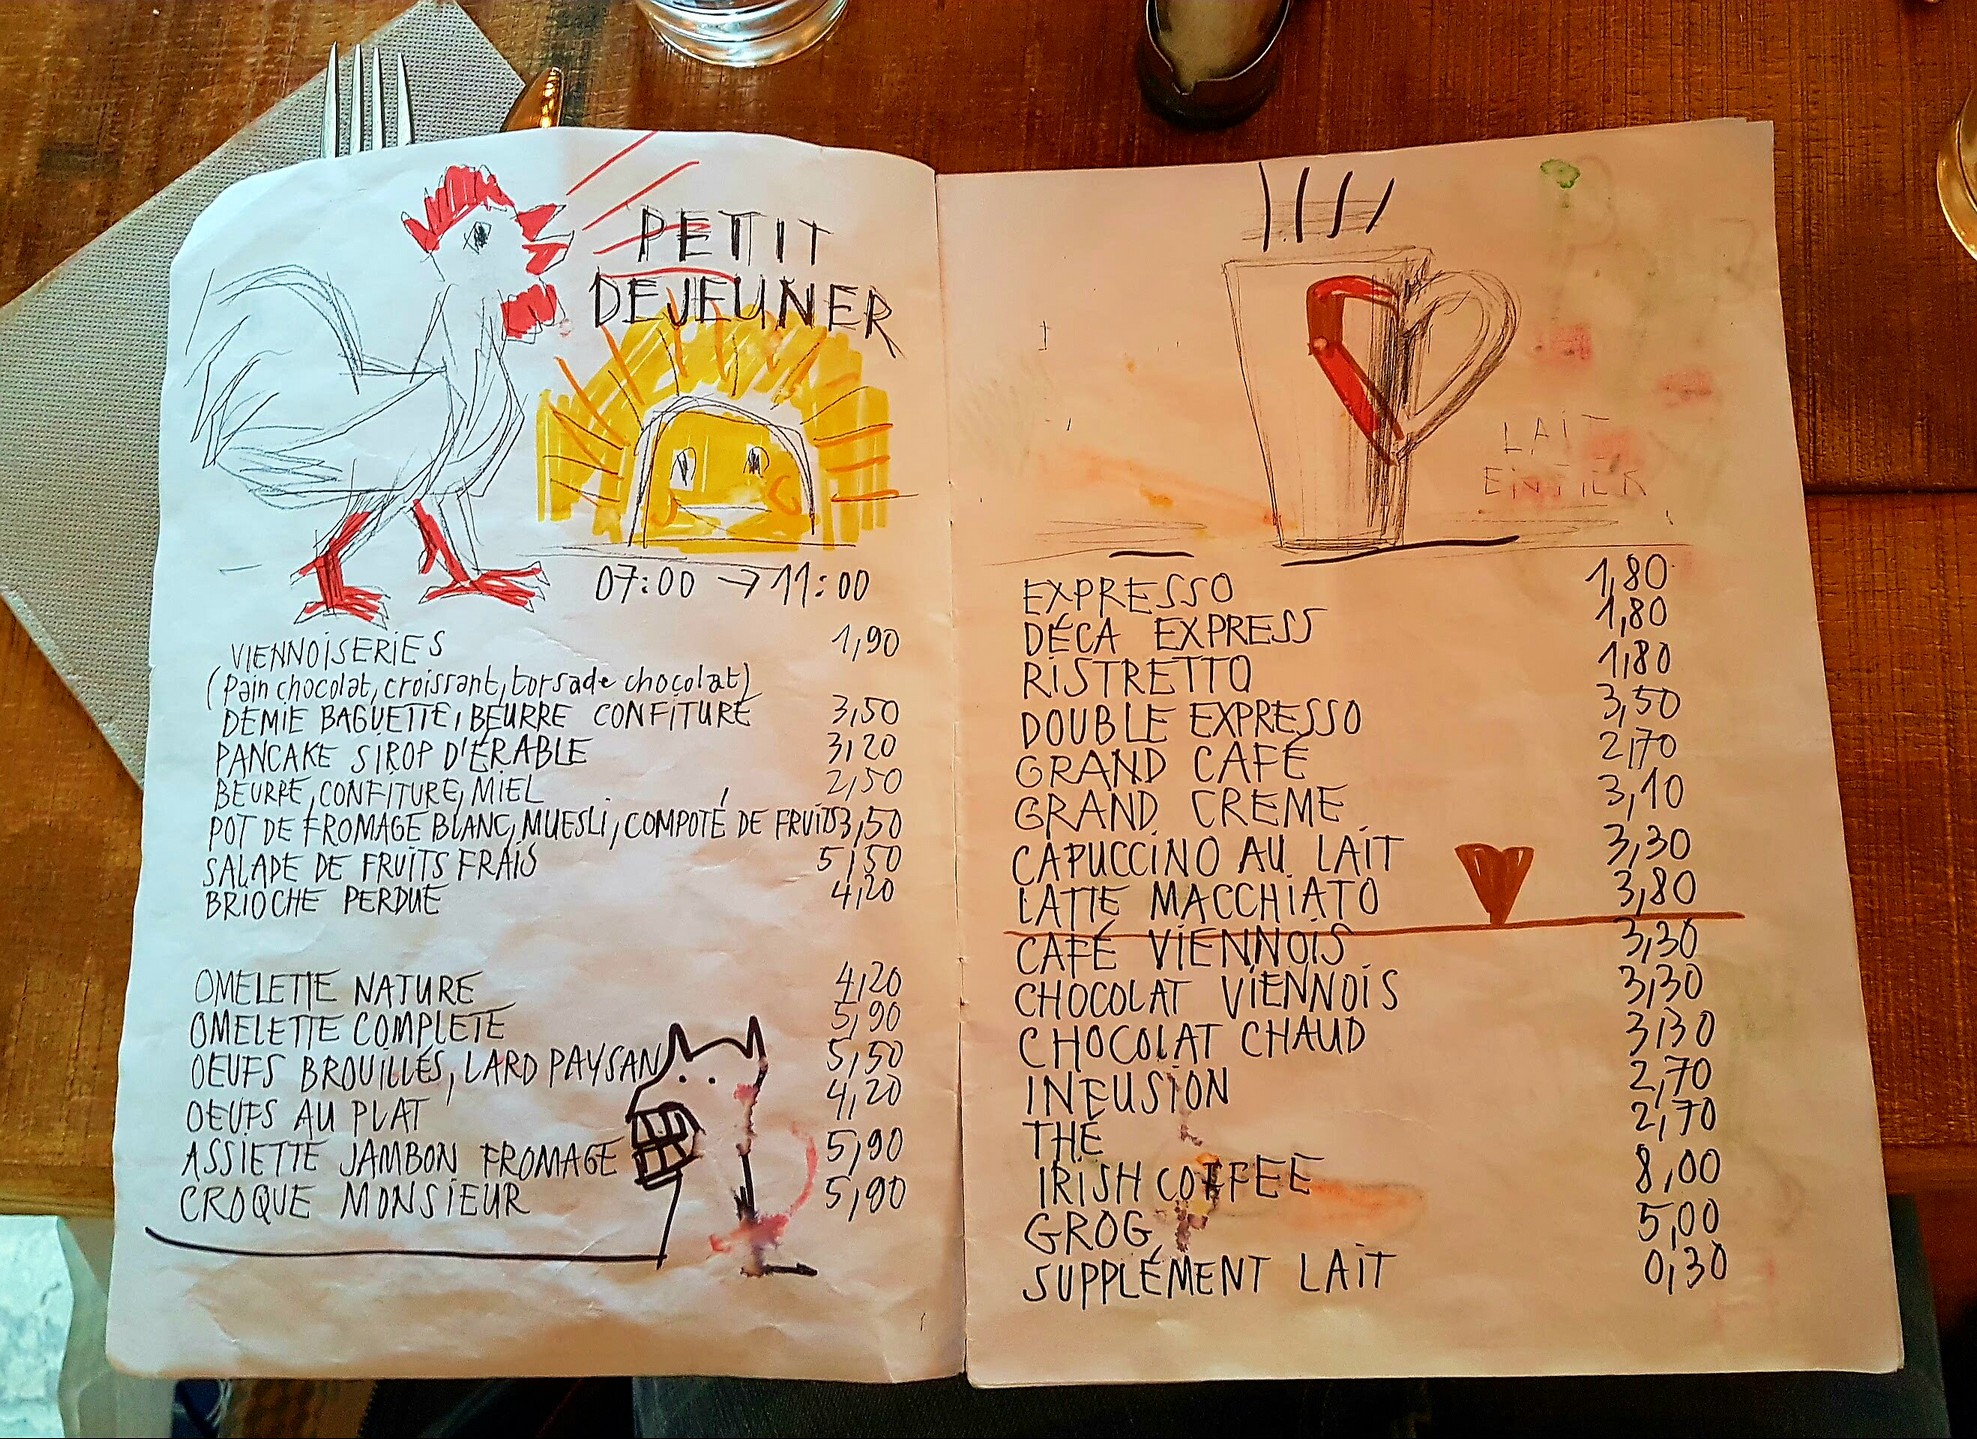 PETIT
DEJEUNER
07:00 → 11:00
VIENNOISERIES 1,90
(pain chocolat, croissant, torsade chocolat)
DEMIE BAGUETTE, BEURRE CONFITURE 3,50
PANCAKE SIROP D'ÉRABLE 3,20
BEURRE, CONFITURE, MIEL 2,50
POT DE FROMAGE BLANC, MUESLI, COMPOTÉ DE FRUITS 3,50
SALADE DE FRUITS FRAIS 5,50
BRIOCHE PERDUE 4,20
OMELETTE NATURE 4,20
OMELETTE COMPLETE 5,90
OEUFS BROUILLÉS, LARD PAYSAN 5,50
OEUFS AU PLAT 4,20
ASSIETTE JAMBON FROMAGE 5,90
CROQUE MONSIEUR 5,90
LAIT
ENTIER
EXPRESSO 1,80
DÉCA EXPRESS 1,80
RISTRETTO 1,80
DOUBLE EXPRESSO 3,50
GRAND CAFÉ 2,70
GRAND CREME 3,10
CAPUCCINO AU LAIT 3,30
LATTE MACCHIATO 3,80
CAFÉ VIENNOIS 3,30
CHOCOLAT VIENNOIS 3,30
CHOCOLAT CHAUD 3,30
INFUSION 2,70
THÉ 2,70
IRISH COFFEE 8,00
GROG 5,00
SUPPLÉMENT LAIT 0,30